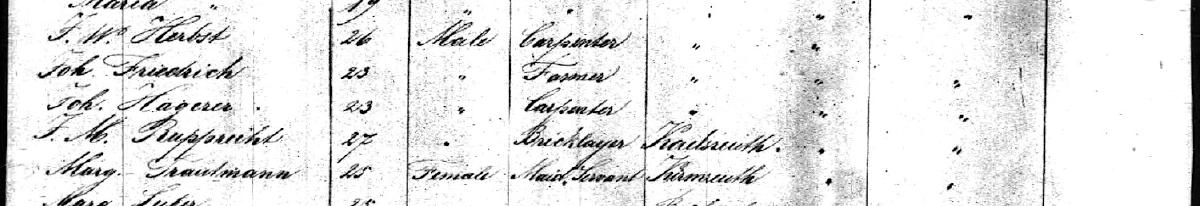 Maria " 19 " " " "
F. Wm Herbst 26 Male Carpenter " " "
Joh. Friedrich 23 " Farmer " " "
Joh. Hagerer 23 " Carpenter " " "
J. M. Rupprecht 27 " Bricklayer " "
Marg. Trautmann 25 Female Maid Servant " "
Marg. 25